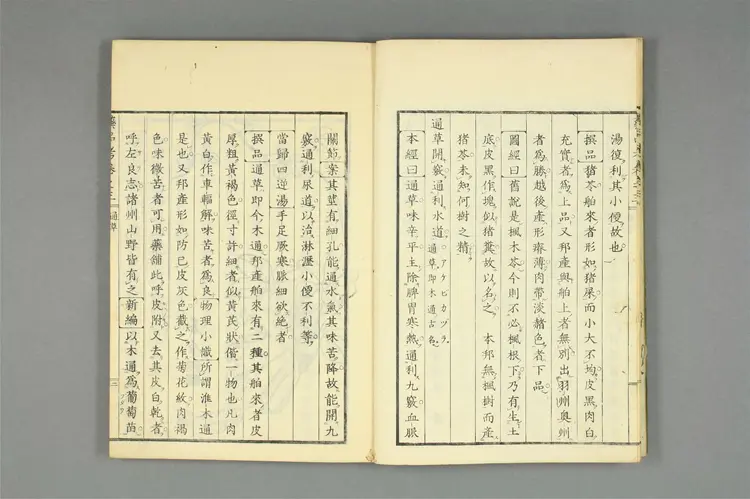 湯使利其小便故也
撰品豬苓舶來者形如猪屎而小大不均皮黑肉白
充實者爲上品又邦產與舶上者無別出羽州奥州
者爲勝越後產形瘠薄肉帶淡赭色者下品
圖經曰舊說是楓木苓今則不必楓根下乃有生土
底皮黑作塊似猪糞故以名之 本邦無楓樹而產
猪苓未知何樹之精
通草開竅通利水道 アケビカツラ 通草即木通古名
本經曰通草味辛平主除脾胃寒熱通利九竅血脈
關節案其莖有細孔能通水氣其味苦降故能開九
竅通利尿道以治淋瀝小便不利等
當歸四逆湯手足厥寒脈細欲絶者
撰品通草即今木通邦產舶來有二種其舶來者皮
厚粗黃褐色徑寸許細者似黃芪狀偕一物也凡肉
黃白作車輻解味苦者爲良物理小識所謂淮木通
是也又邦產形如防已皮灰色截之作菊花紋肉褐
色味微苦者可用藥舖此呼皮附又去其皮白乾者
呼左良志諸州山野皆有之新編以木通爲葡萄苗
藥品考卷之二 通草 二